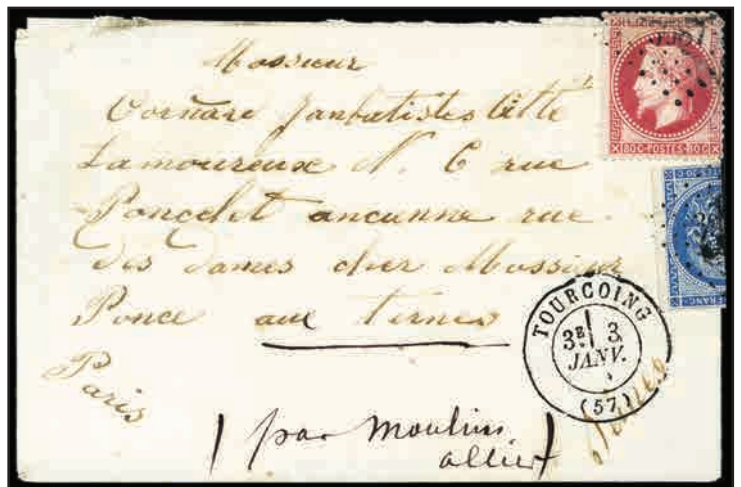 Monsieur
Cornare Janbatistes Citté
Lamoureux N. 6 rue
Poncelet ancienne rue
des dames cher Mossieur
Ponce aux ternes
Paris
(par Moulins
allier)
TOURCOING
3E 3
JANV.
(57)
80C·POSTES·80C